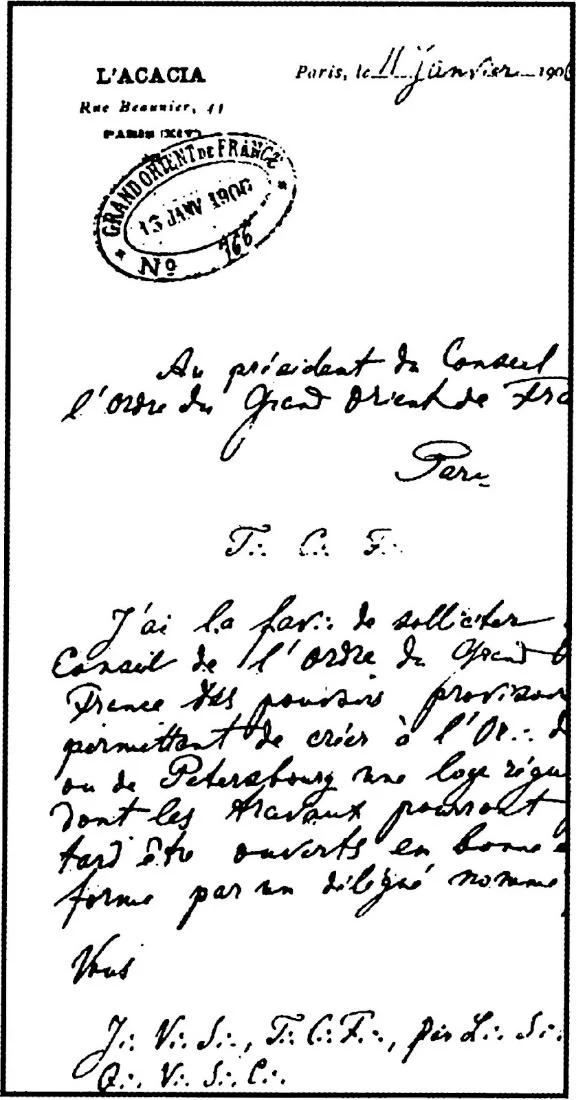 L'ACACIA
Rue Beaunier, 41
PARIS (XIVe)
Paris, le 11 janvier 1906
GRAND ORIENT DE FRANCE
13 JANV 1906
No 166
Au président du Conseil
l'ordre du Grand Orient de Fra
Paris
T∴ C∴ F∴
J'ai la fav∴ de solliciter
Conseil de l'Ordre du Grand O
France des pouvoirs provisoir
permettant de créer à l'Or∴ d
ou de Petersbourg une loge régu
dont les travaux pourront
tard être ouverts en bonne e
forme par un délégué nommé
Vous
J∴ V∴ S∴, T∴ C∴ F∴, par L∴ S∴
Q∴ V∴ S∴ C∴